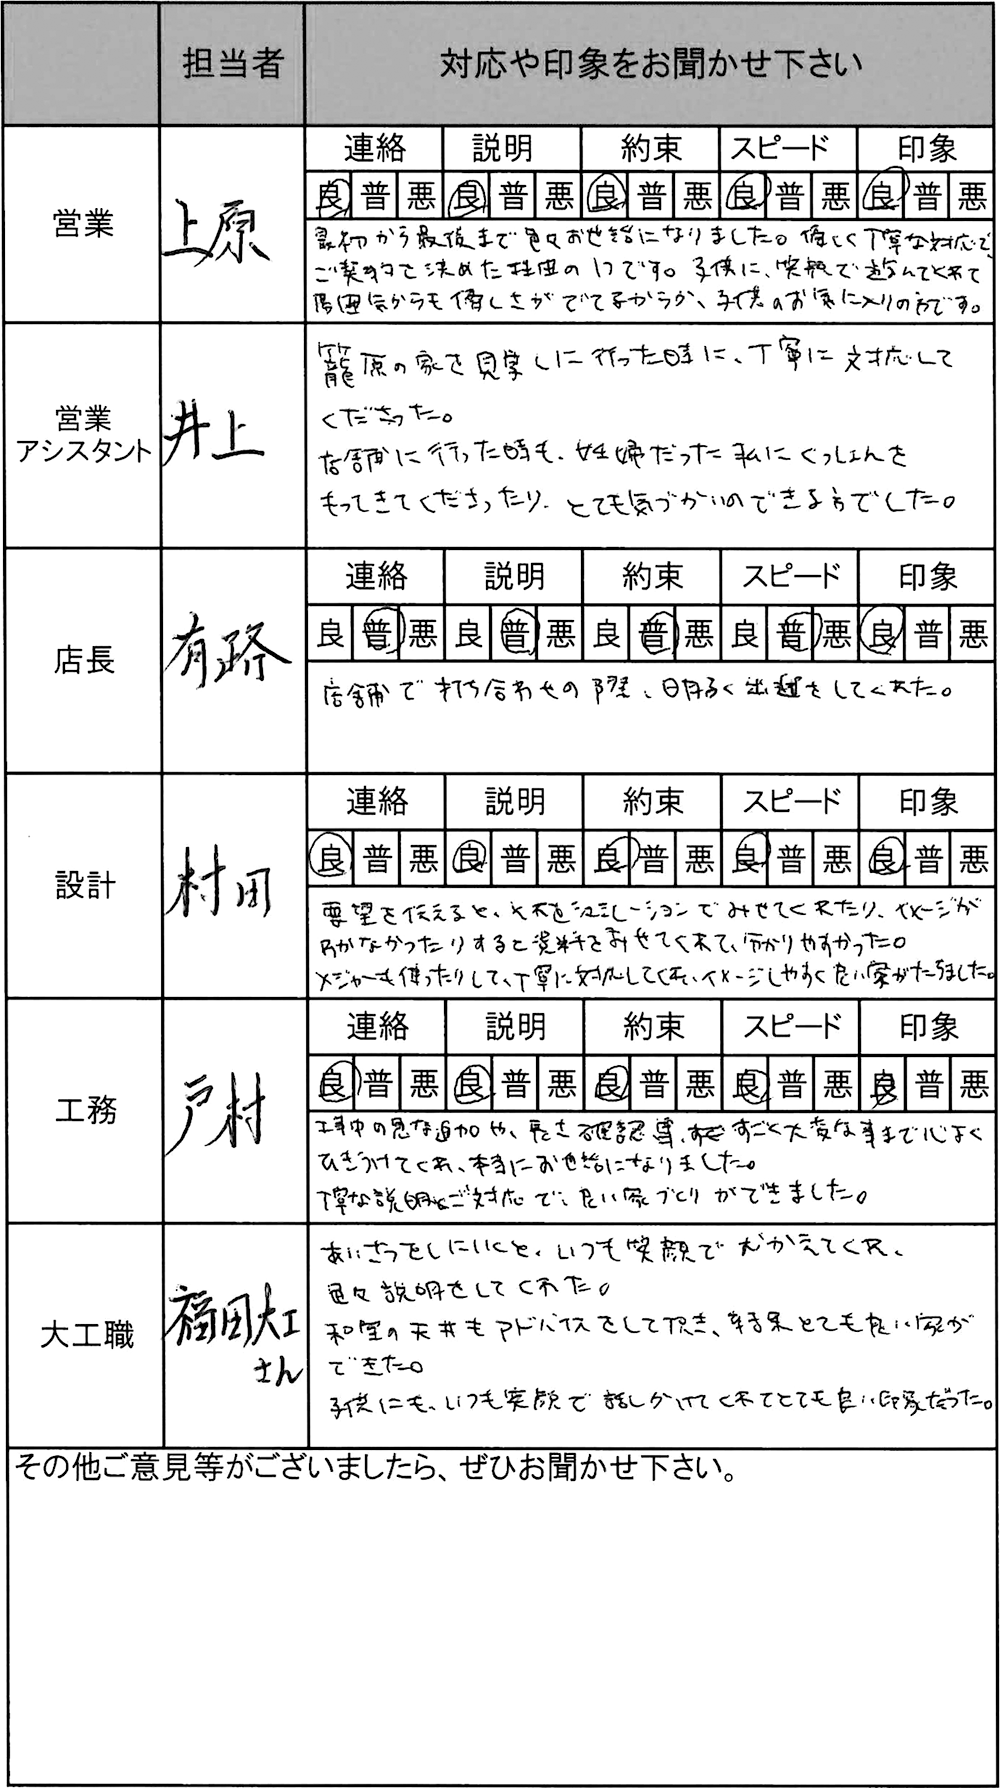 担当者 対応や印象をお聞かせ下さい
営業 上原
連絡 説明 約束 スピード 印象
良 普 悪 良 普 悪 良 普 悪 良 普 悪 良 普 悪
最初から最後まで色々お世話になりました。優しく丁寧な対応で、
ご契約を決めた理由の1つです。子供に、笑顔で遊んでくれて
雰囲気からも優しさがでてるからか、子供のお気に入りの方です。
営業
アシスタント 井上
籠原の家を見学しに行った時に、丁寧に対応して
くださった。
店舗に行った時も、妊婦だった私にくっしょんを
もってきてくださったり、とても気づかいのできる方でした。
店長 有路
連絡 説明 約束 スピード 印象
良 普 悪 良 普 悪 良 普 悪 良 普 悪 良 普 悪
店舗で打ち合わせの際、明るく出迎をしてくれた。
設計 村田
連絡 説明 約束 スピード 印象
良 普 悪 良 普 悪 良 普 悪 良 普 悪 良 普 悪
要望を伝えると、それをシュミレーションでみせてくれたり、イメージが
分かなかったりすると資料をみせてくれて、分かりやすかった。
メジャーも使ったりして、丁寧に対応してくれ、イメージしやすく良い家がたちました。
工務 戸村
連絡 説明 約束 スピード 印象
良 普 悪 良 普 悪 良 普 悪 良 普 悪 良 普 悪
工事中の急な追加や、長さ確認等、すごく大変な事まで心よく
ひきうけてくれ、本当にお世話になりました。
丁寧な説明とご対応で、良い家づくりができました。
大工職 福田大工
さん
あいさつをしにいくと、いつも笑顔でむかえてくれ、
色々説明をしてくれた。
和室の天井もアドバイスをして頂き、結果とても良い家が
できた。
子供にも、いつも笑顔で話しかけてくれてとても良い印象だった。
その他ご意見等がございましたら、ぜひお聞かせ下さい。